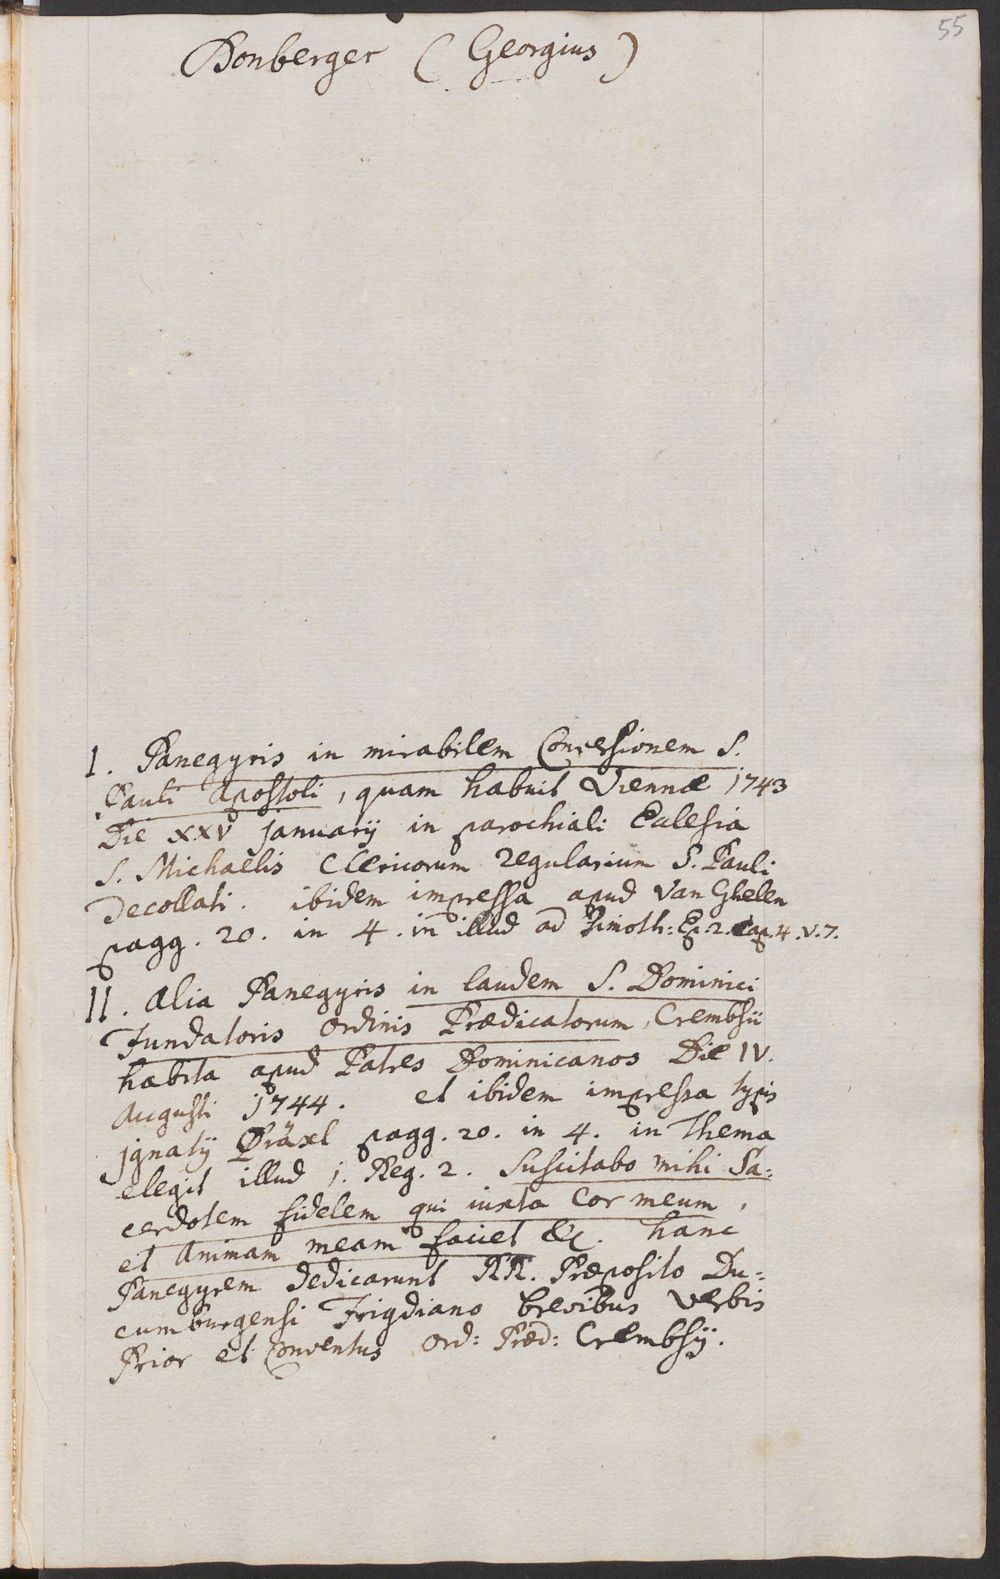 55
Donberger (Georgius)
I. Panegyris in mirabilem Conversionem S.
Pauli Apostoli, quam habuit Viennæ 1743
Die XXV januarij in parochiali Eclesia
S. Michaelis Clericorum regularium S. Pauli
Decollati. ibidem impressa apud Van Ghelen
pagg. 20. in 4. in illud ad Timoth: Ep. 2. Cap. 4. v. 7.
II. Alia Panegyris in laudem S. Dominici
Fundatoris Ordinis Prædicatorum, Crembsii
habita apud Patres Dominicanos Die IV.
Augusti 1744. et ibidem impressa typis
jgnatij Präxl pagg. 20. in 4. in Thema
elegit illud j. Reg. 2. Suscitabo mihi Sa=
cerdotem fidelem qui iuxta Cor meum,
et Animam meam faciet &c. hanc
Panegyrem dedicarunt RR. Præposito Du=
cumburgensi Frigdiano brevibus verbis
Prior et Conventus Ord: Præd: Crembsij.